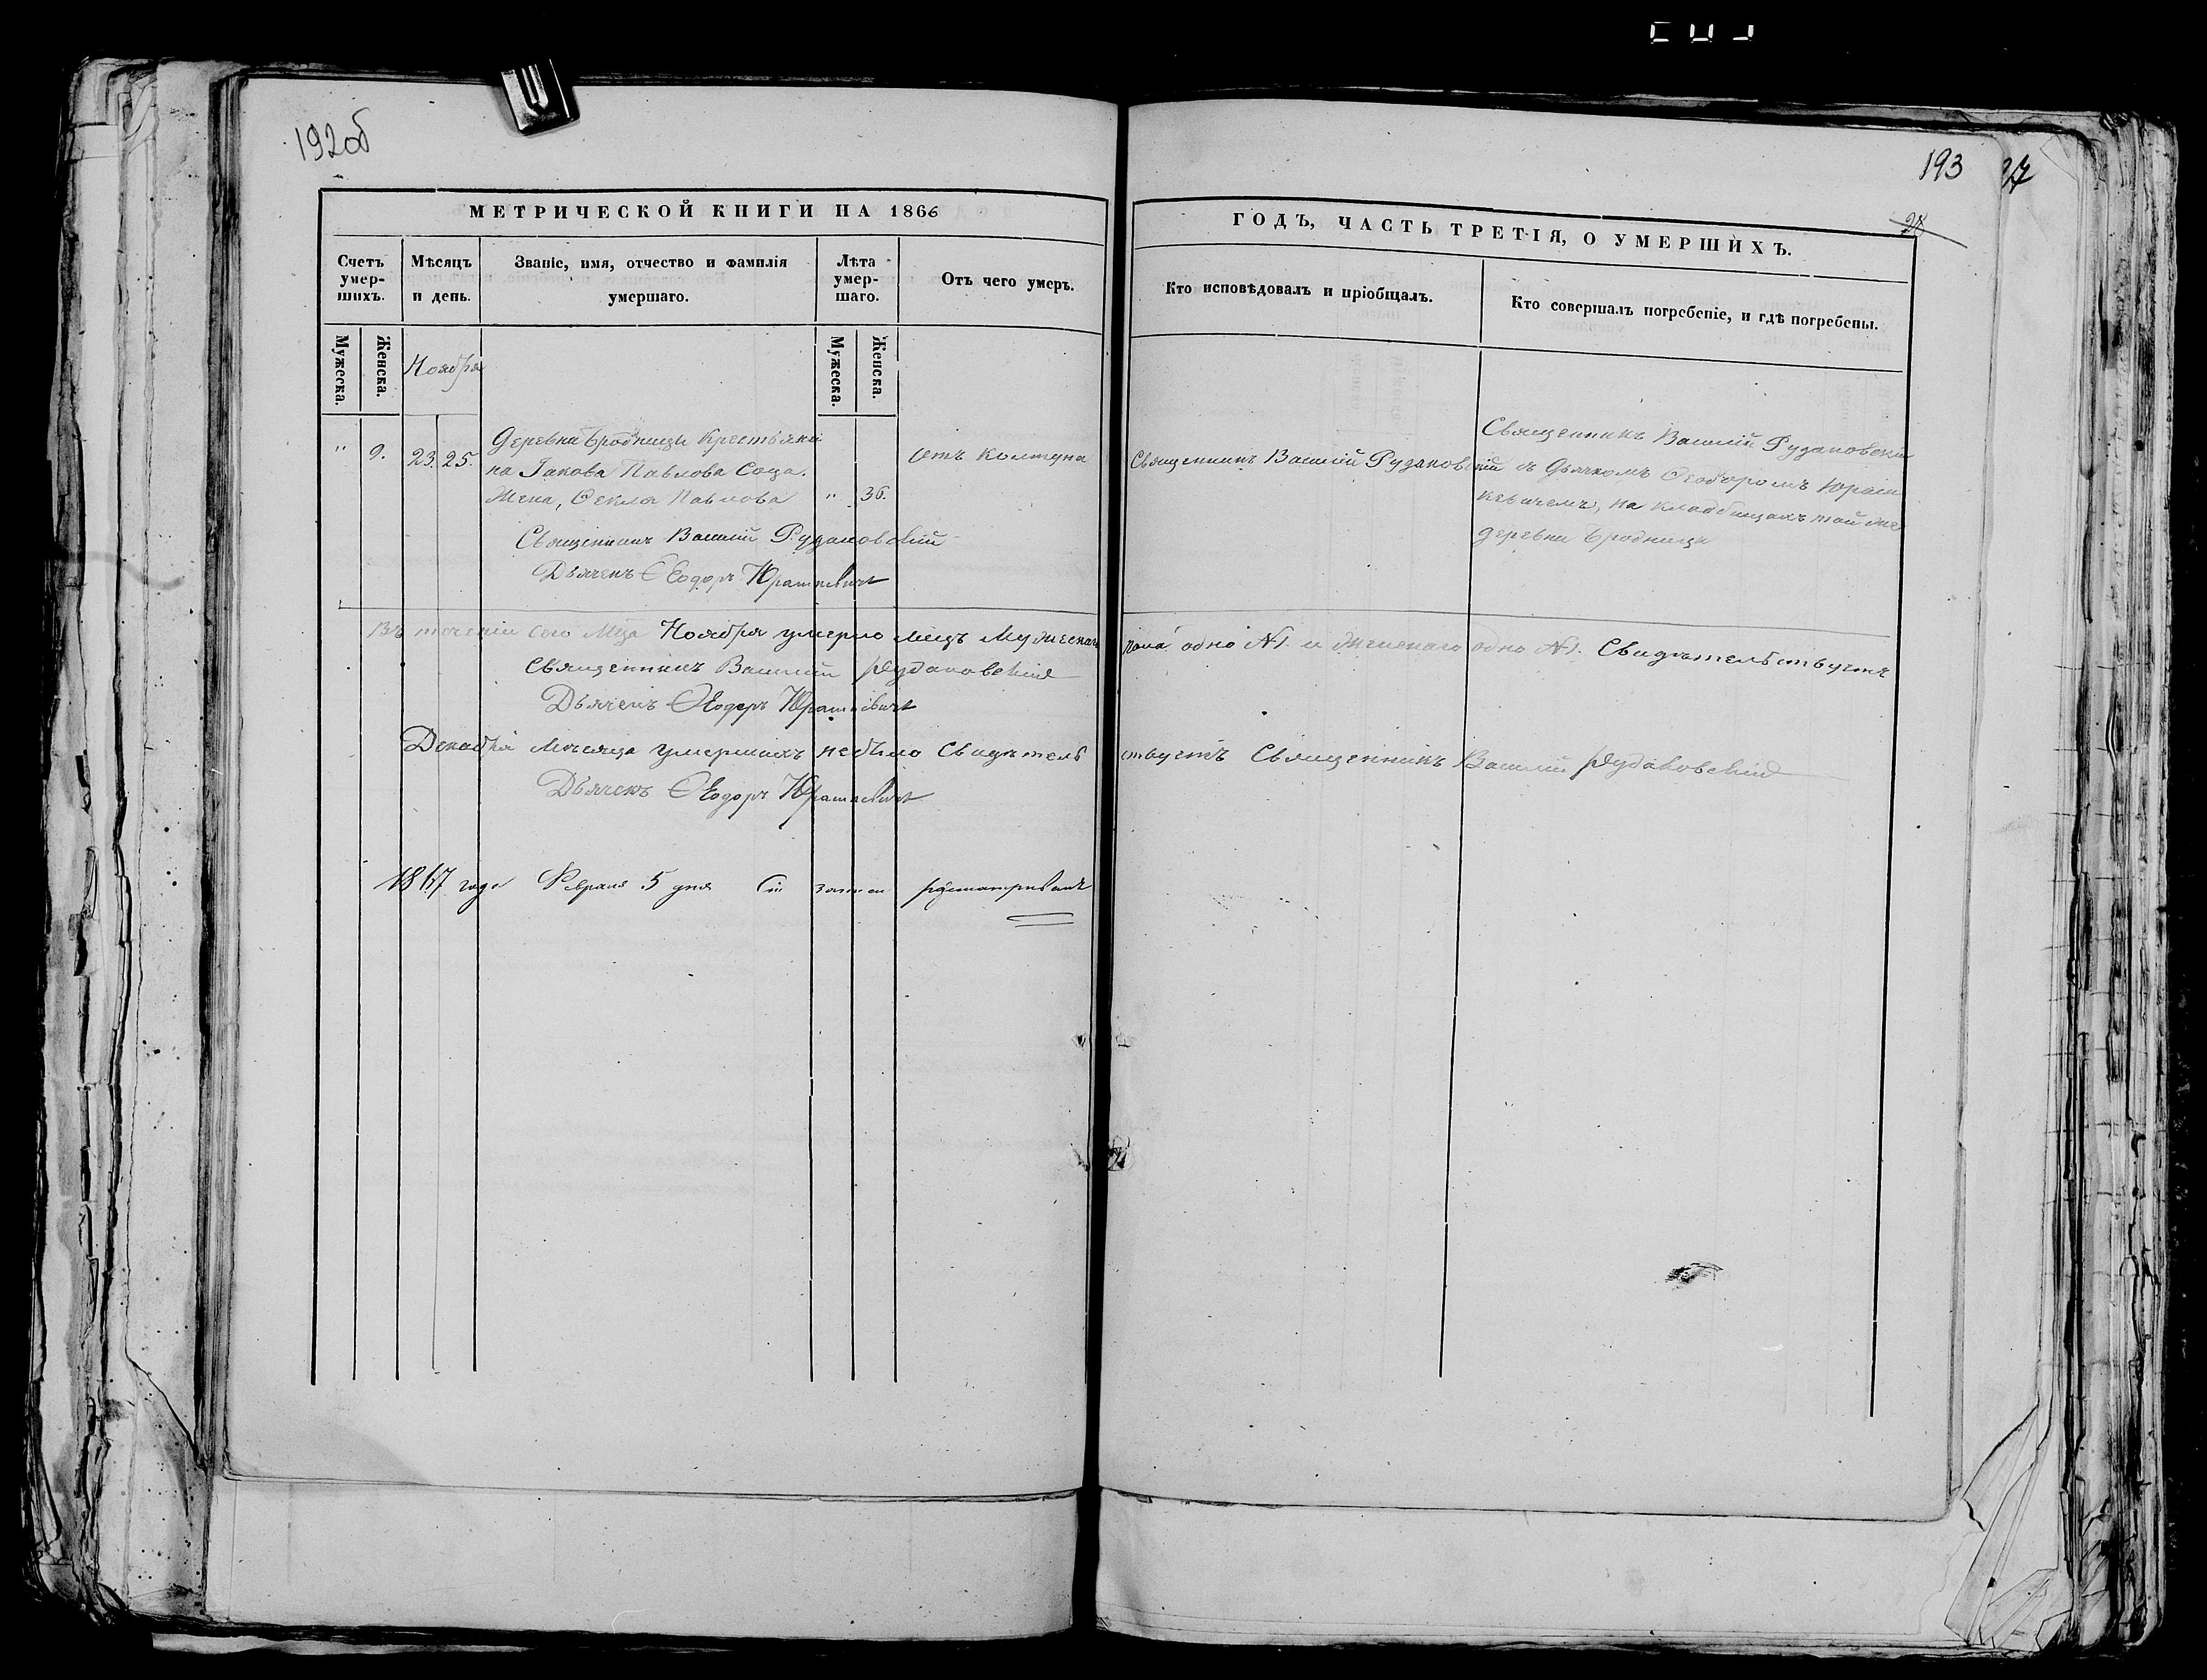 192об
193
27
28
МЕТРИЧЕСКОЙ КНИГИ НА 1866
ГОДЪ, ЧАСТЬ ТРЕТІЯ, О УМЕРШИХЪ.
Счетъ умер-шихъ.
Мѣсяцъ и день.
Званіе, имя, отчество и фамилія умершаго.
Лѣта умер-шаго.
Отъ чего умеръ.
Кто исповѣдовалъ и пріобщалъ.
Кто совершалъ погребеніе, и гдѣ погребены.
Мужеска.
Женска.
Ноября
Мужеска.
Женска.
" 9. 23. 25.
Деревни Бродницы Крестьяни
на Іакова Павлова Соца.
Жена, Ѳекла Павлова
" 36.
Отъ колтуна
Священникъ Василій Рудаковскій
Священникъ Василій Рудаковскій
съ Дьячкомъ Ѳеодоромъ Юраш
кевичемъ, на кладбищахъ той же
деревни Бродницы
Священникъ Василій Рудаковскій
Дьячекъ Ѳеодоръ Юрашкевичъ
Въ теченіи сего Мца Ноября умерло лицъ Мужескаго пола одно №1. и Женскаго одно №1. Свидѣтельствуетъ
Священникъ Василий Рудаковскій
Дьячекъ Ѳеодоръ Юрашкевичъ
Декабря Мѣсяца умершихъ небыло Свидѣтельствуетъ Священникъ Василій Рудаковскій
Дьячекъ Ѳеодоръ Юрашкевичъ
1867 года Февраля 5 дня